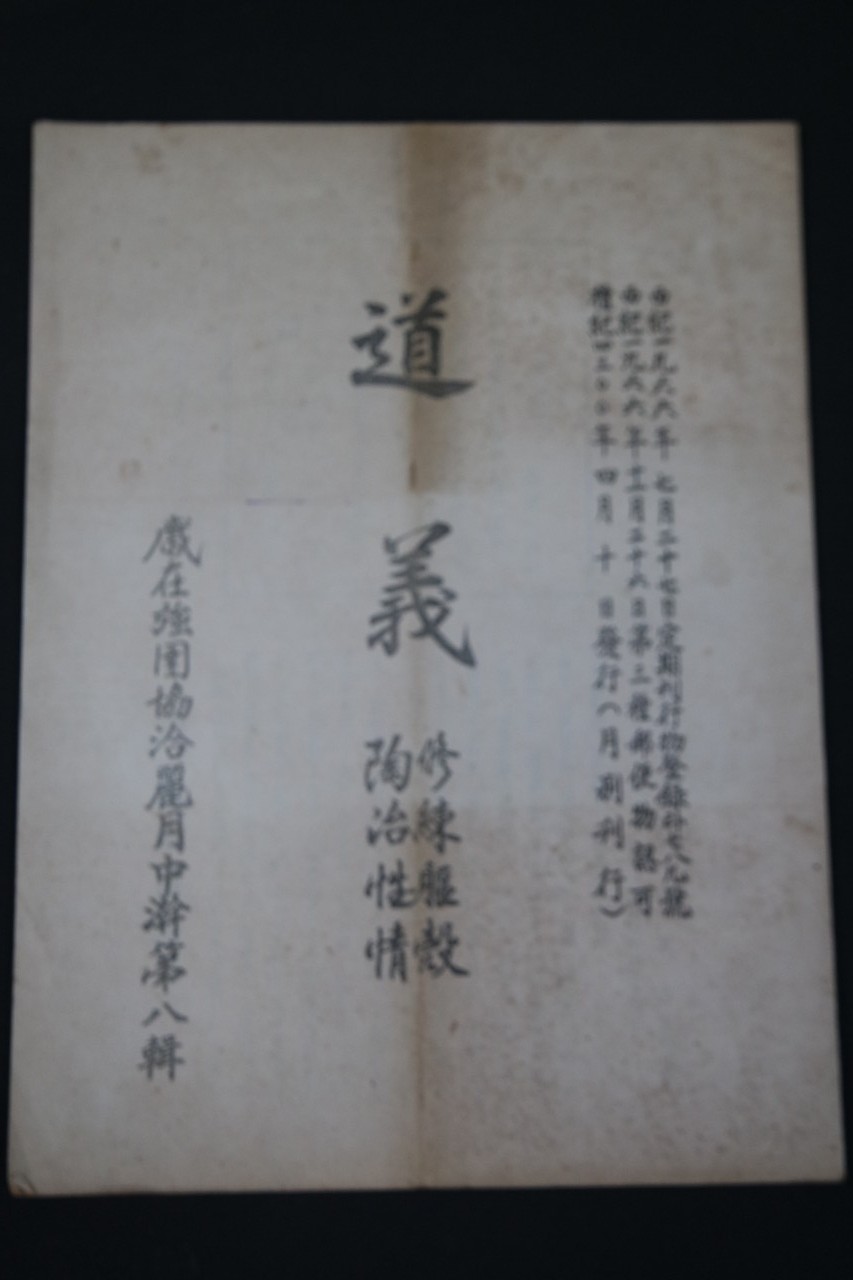 紀一九六六年七月二十七日定期刊行物登錄外七八九號
紀一九六六年十二月二十六日第三種郵便物認可
紀四三〇〇年四月十日發行(月刊刊行)
道義
修練軀殼
陶冶性情
歲在強圉協洽麗月中澣第八輯